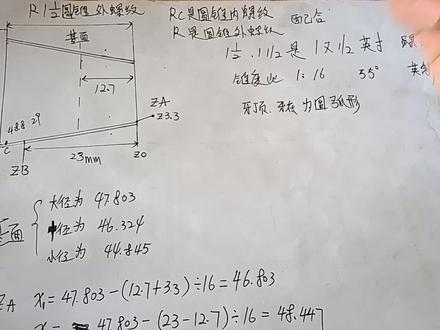 R 1½圆锥外螺纹
基面
12.7
ZA
Z3.3
48.8 29
C
23mm
ZB
Z0
Rc是圆锥内螺纹 配合
R是圆锥外螺纹
1½ . 1 1/2 是 1又1/2 英寸
锥度比 1:16 55°
牙顶.牙底 为圆弧形
基面
大径为 47.803
中径为 46.324
小径为 44.845
ZA X₁=47.803-(12.7+3.3)÷16=46.803
47.803-(23-12.7)÷16=48.447